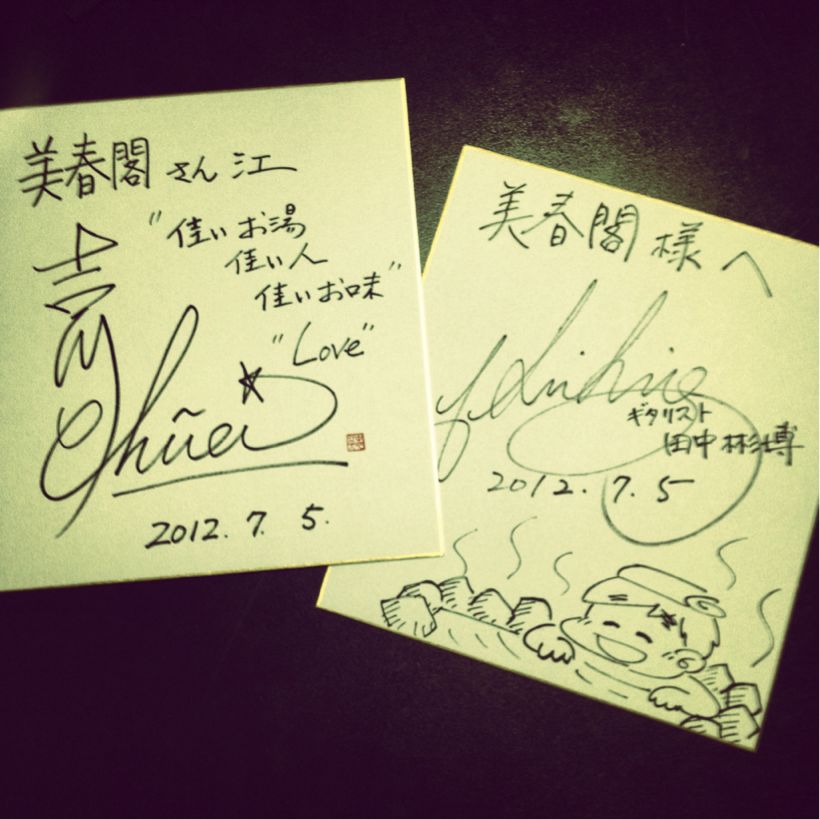 美春閣さん江
"佳いお湯
佳い人
佳いお味"
"Love"
2012.7.5.
美春閣様へ
ギタリスト
田中彬博
2012.7.5